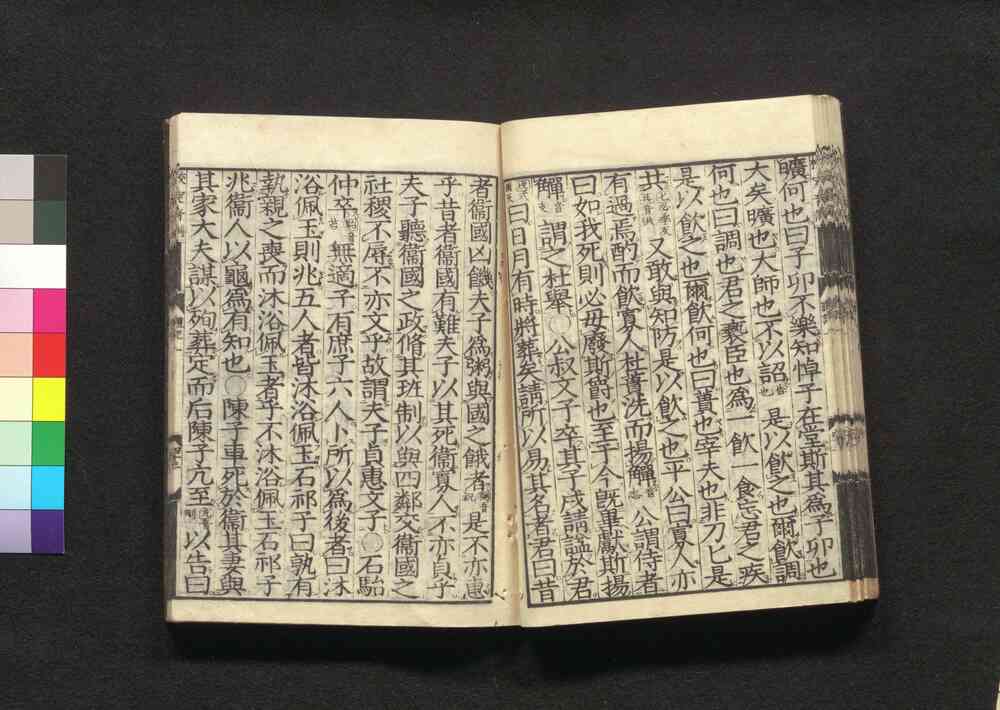 曠何也曰子卯不樂知悼子在堂斯其爲子卯也
大矣曠也大師也不以詔是以飮之也爾飮調
何也曰調也君之褻臣也爲一飮一食忘君之疾
是以飮之也爾飮何也曰蕢也宰夫也非刀匕是
共又敢與知防是以飮之也平公曰寡人亦
有過焉酌而飮寡人杜蕢洗而揚觶公謂侍者
曰如我死則必毋廢斯爵也至于今旣畢獻斯揚
觶謂之杜舉○公叔文子卒其子戍請諡於君
曰日月有時將葬矣請所以易其名者君曰昔
者衞國凶饑夫子爲粥與國之餓者是不亦惠
乎昔者衞國有難夫子以其死衞寡人不亦貞乎
夫子聽衞國之政脩其班制以與四鄰交衞國之
社稷不辱不亦文乎故謂夫子貞惠文子○石駘
仲卒無適子有庶子六人卜所以爲後者曰沐
浴佩玉則兆五人者皆沐浴佩玉石祁子曰孰有
執親之喪而沐浴佩玉者乎不沐浴佩玉石祁子
兆衞人以龜爲有知也○陳子車死於衞其妻與
其家大夫謀以殉葬定而后陳子亢至以告曰